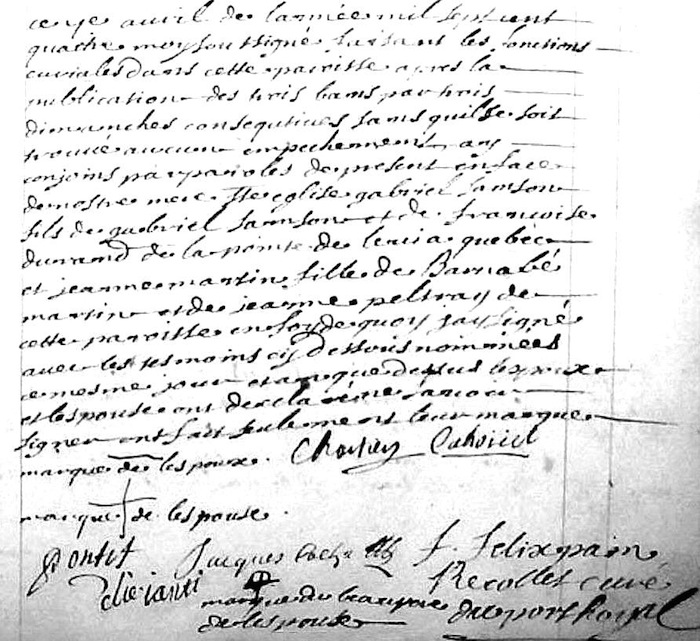 ce ye avril de lannée mil sept cent
quattre moy soussigné faisant les fonctions
curiales dans cette paroisse apres la
publication des trois bans par trois
dimanches consequtives sans quil se soit
trouvé aucun empechement ay
conjoins par paroles de present en face
de nostre mere Ste eglise gabriel samson
fils de gabriel samson et de francoise
durand de la pointe de levia quebéc
et jeanne martin fille de Barnabé
martin et de jeanne peltray de
cette paroisse en foy de quoy jay signé
avec les tesmoins cy dessous nommees
ce mesme jour et an que dessus lespoux
et lespouse ont declaré ne scavoir
signer ont fait seulement leur marque
marque de lespoux.
marque de lespouse.
Jacques f. felix pain
Recollet curé
marque du beaupere du port Royal
de lespouse